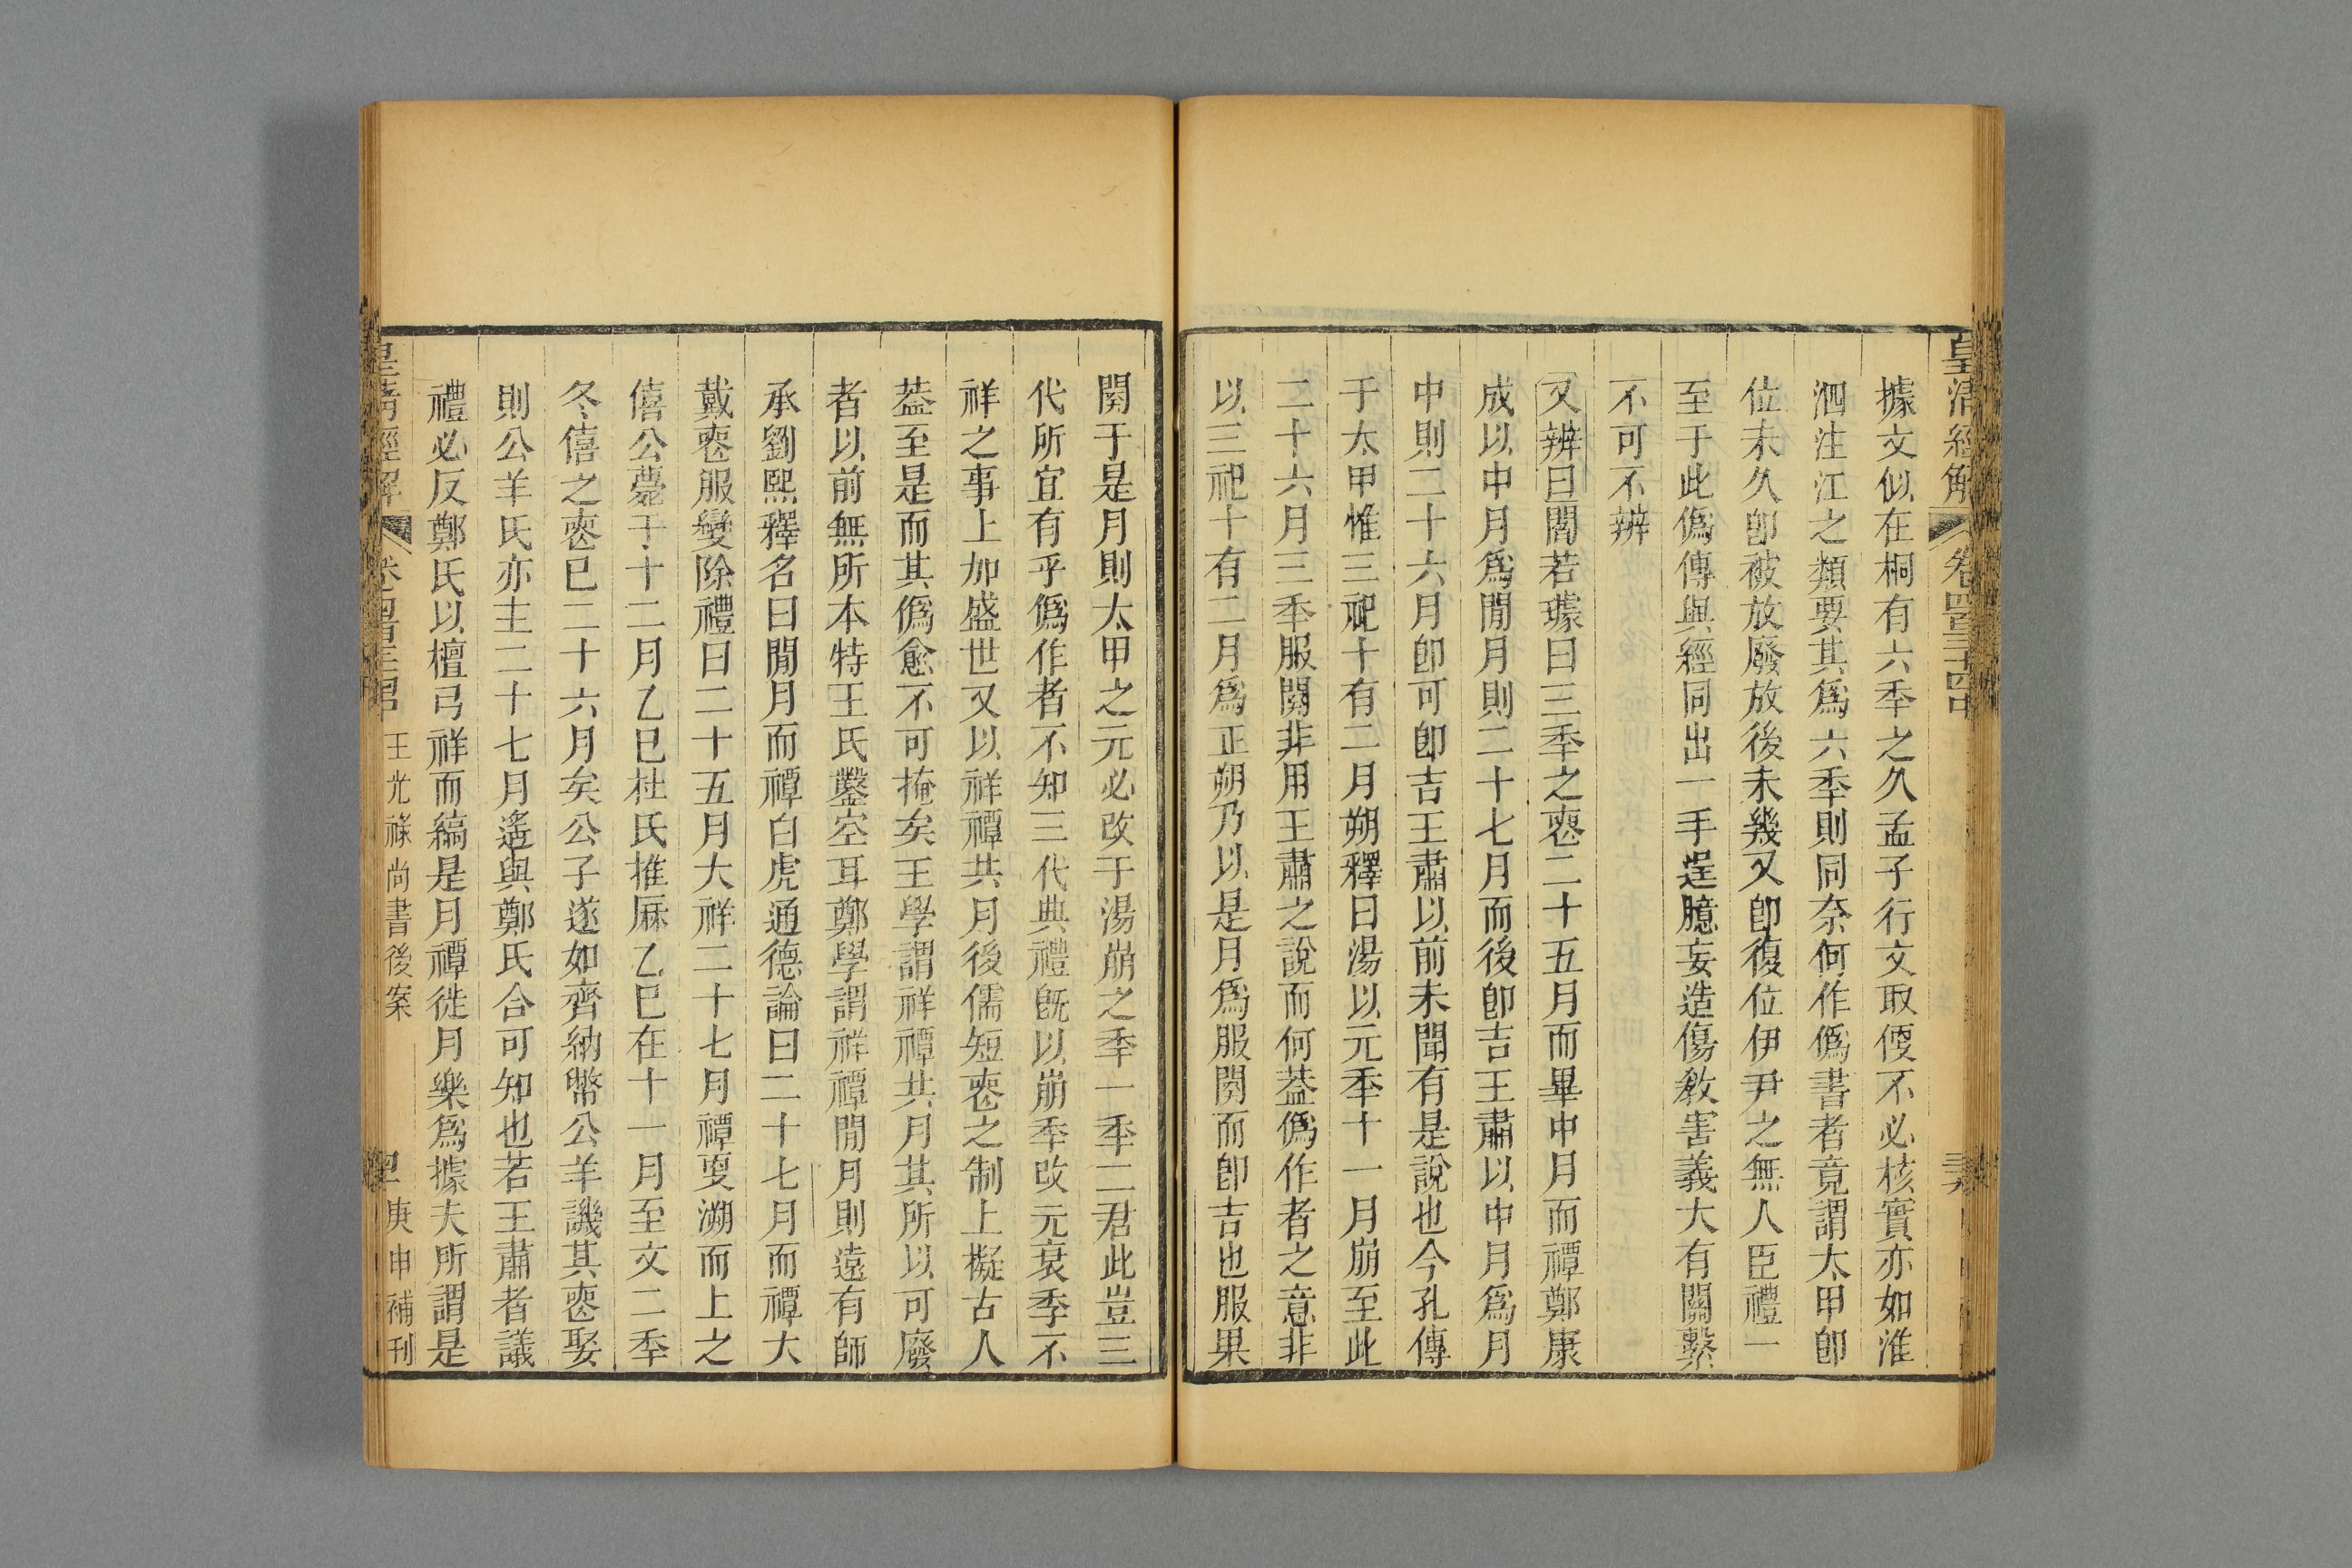 皇清經解 卷四百三十四中
據文似在桐有六秊之久孟子行文取便不必核實亦如淮
泗注江之類要其爲六秊則同奈何作僞書者竟謂太甲卽
位未久卽被放廢放後未幾又卽復位伊尹之無人臣禮一
至于此僞傳與經同出一手逞臆妄造傷敎害義大有關繫
不可不辨
又辨曰閻若璩曰三秊之喪二十五月而畢中月而禫鄭康
成以中月爲閒月則二十七月而後卽吉王肅以中月爲月
中則二十六月卽可卽吉王肅以前未聞有是說也今孔傳
于太甲惟三祀十有二月朔釋曰湯以元秊十一月崩至此
二十六月三秊服闋非用王肅之說而何葢僞作者之意非
以三祀十有二月爲正朔乃以是月爲服闋而卽吉也服果
闋于是月則太甲之元必改于湯崩之秊一秊二君此豈三
代所宜有乎僞作者不知三代典禮旣以崩秊改元衰季不
祥之事上加盛世又以祥禫共月後儒短喪之制上擬古人
葢至是而其僞愈不可掩矣王學謂祥禫共月其所以可廢
者以前無所本特王氏鑿空耳鄭學謂祥禫閒月則遠有師
承劉熙釋名曰閒月而禫白虎通德論曰二十七月而禫大
戴喪服變除禮曰二十五月大祥二十七月禫更溯而上之
僖公薨于十二月乙巳杜氏推厤乙巳在十一月至文二秊
冬僖之喪已二十六月矣公子遂如齊納幣公羊譏其喪娶
則公羊氏亦主二十七月遙與鄭氏合可知也若王肅者議
禮必反鄭氏以檀弓祥而縞是月禫徙月樂爲據夫所謂是
皇清經解 王光祿尚書後案 庚申補刊